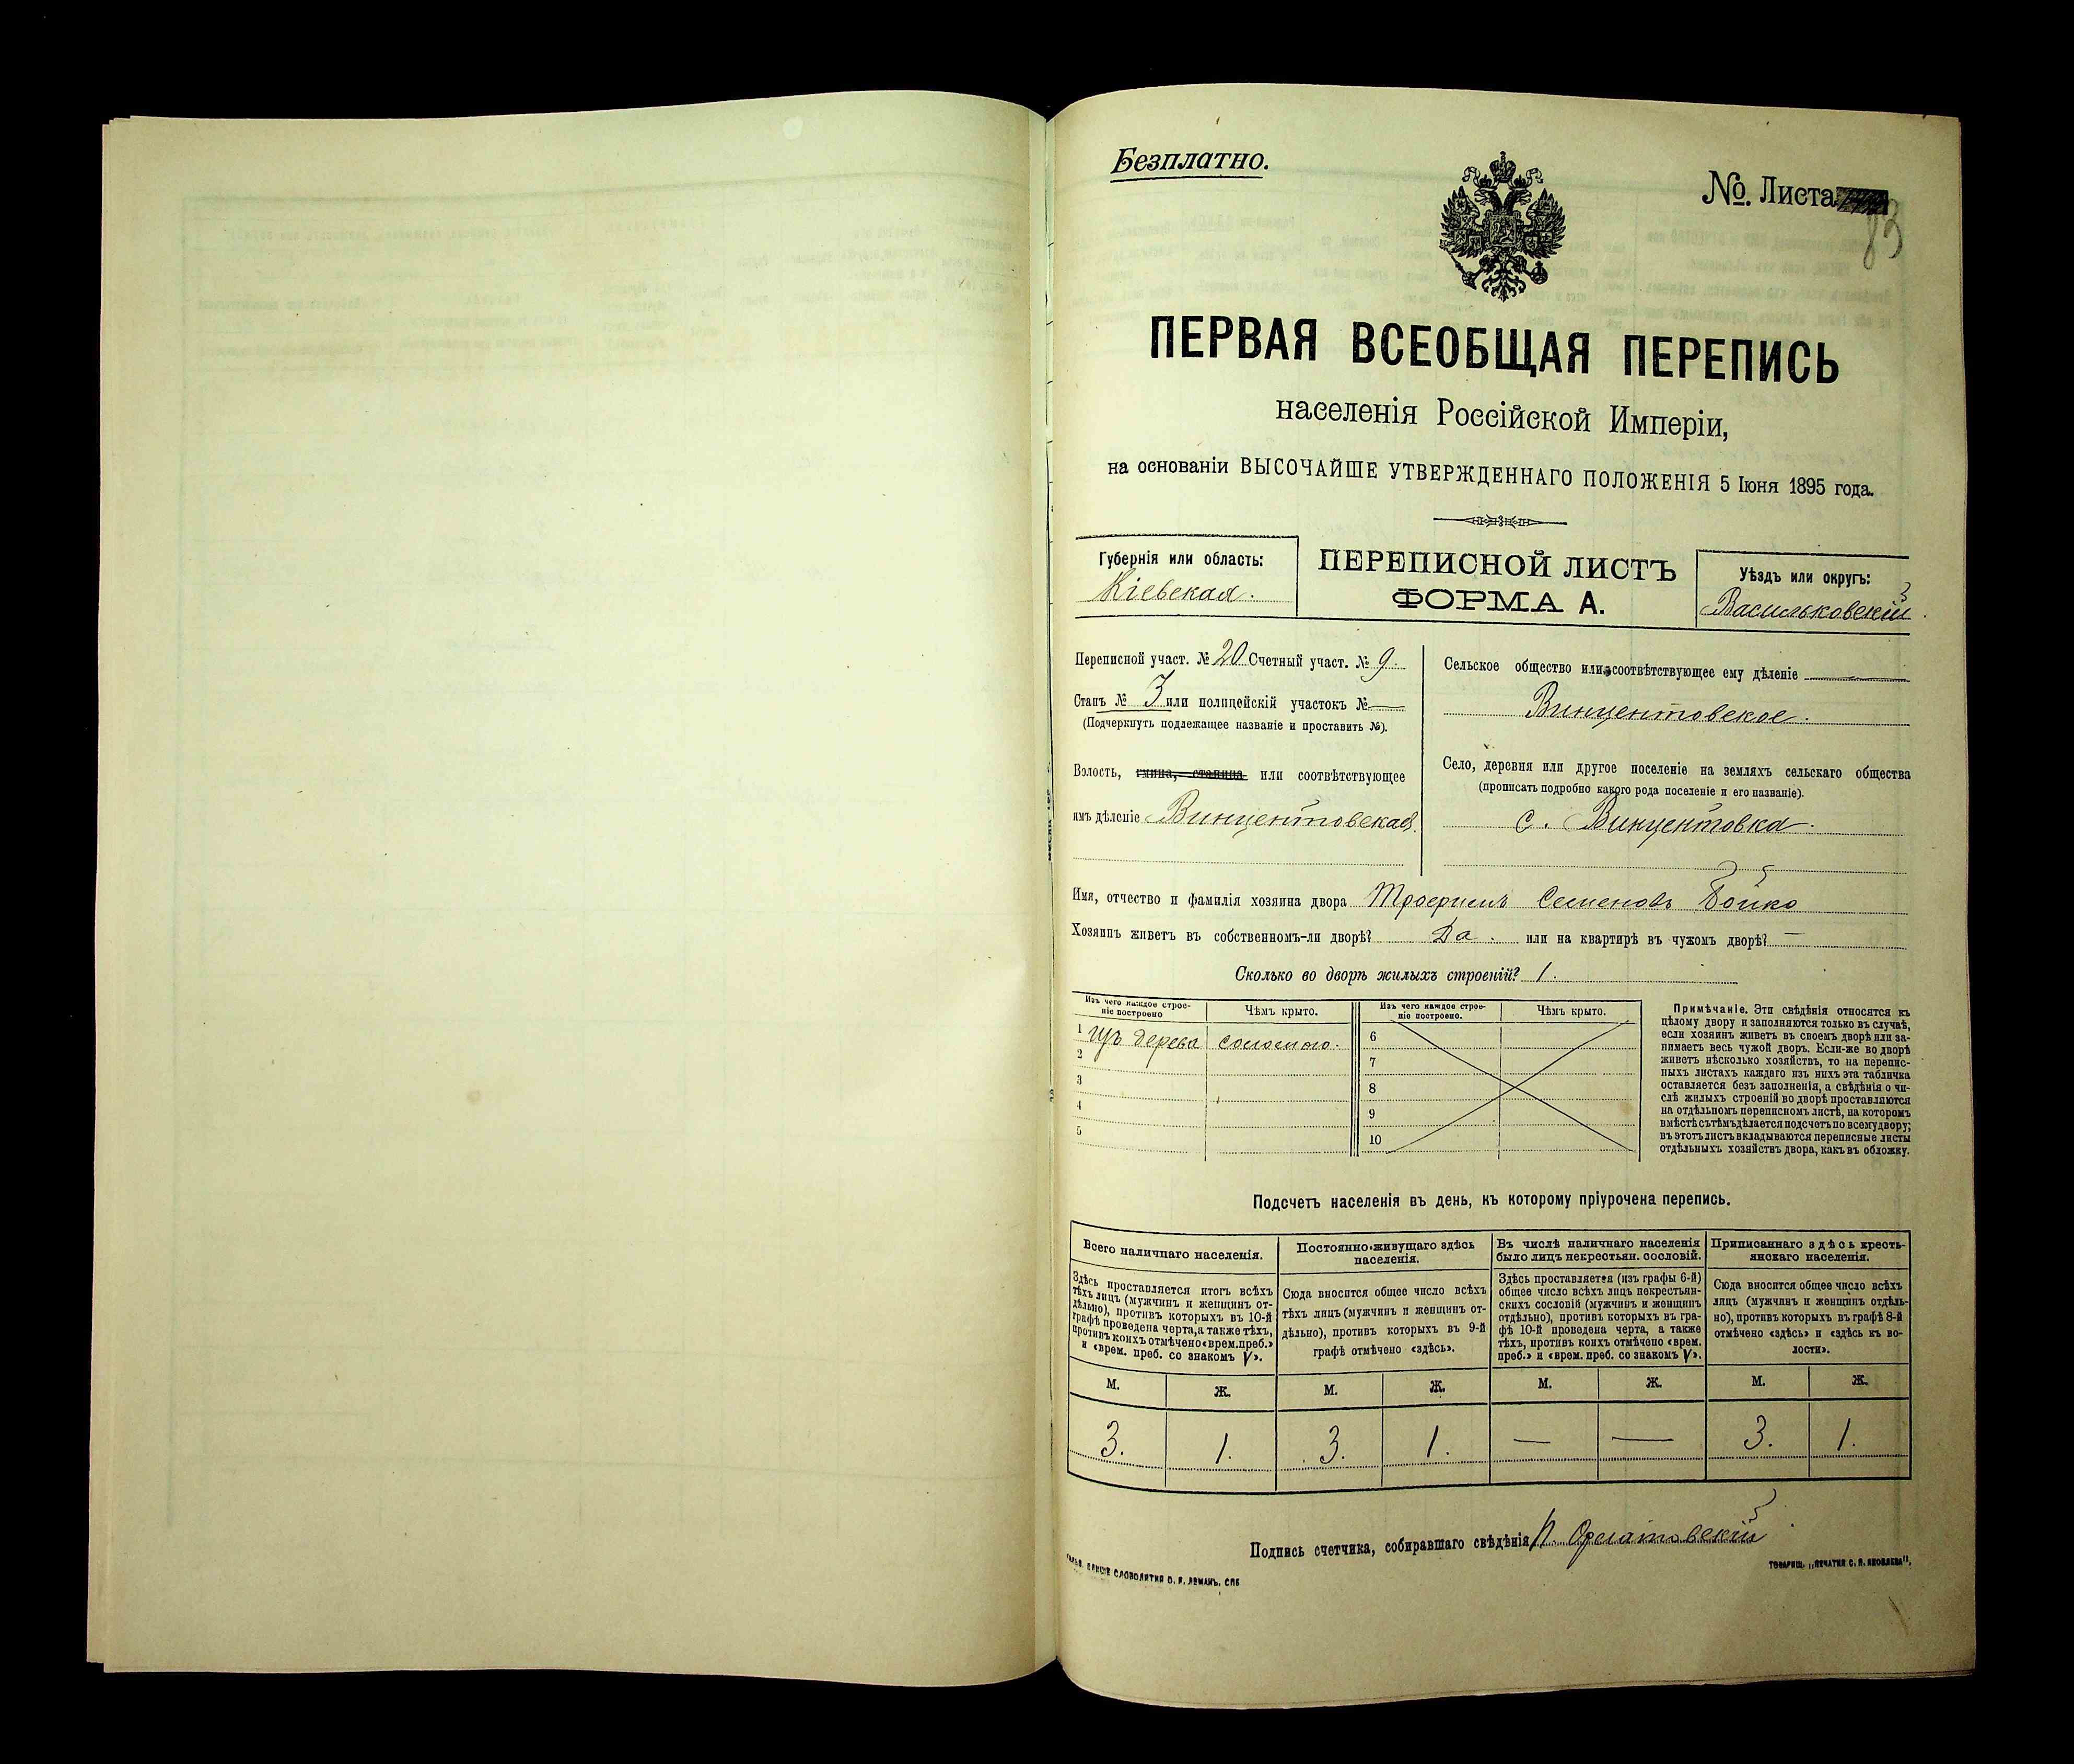 Безплатно.
№. Листа
83
ПЕРВАЯ ВСЕОБЩАЯ ПЕРЕПИСЬ
населенія Россійской Имперіи,
на основаніи ВЫСОЧАЙШЕ УТВЕРЖДЕННАГО ПОЛОЖЕНІЯ 5 Іюня 1895 года.
Губернія или область:
Кіевская.
ПЕРЕПИСНОЙ ЛИСТЪ
ФОРМА А.
Уѣздъ или округъ:
Васильковскій
Переписной участ. № 20 Счетный участ. № 9.
Станъ № 3 или полицейскій участокъ № —
(Подчеркнуть подлежащее названіе и проставить №).
Волость, гмина, станица или соотвѣтствующее
имъ дѣленіе Винцентовская.
Сельское общество или соотвѣтствующее ему дѣленіе
Винцентовское.
Село, деревня или другое поселеніе на земляхъ сельскаго общества
(прописать подробно какого рода поселеніе и его названіе).
с. Винцентовка.
Имя, отчество и фамилія хозяина двора Трофимъ Семеновъ Бойко
Хозяинъ живетъ въ собственномъ-ли дворѣ? Да. или на квартирѣ въ чужомъ дворѣ? —
Сколько во дворѣ жилыхъ строеній? 1.
Изъ чего каждое строе-
ніе построено
Чѣмъ крыто.
1 изъ дерева соломою.
2
3
4
5
Изъ чего каждое строе-
ніе построено.
Чѣмъ крыто.
6
7
8
9
10
Примѣчаніе. Эти свѣдѣнія относятся къ
цѣлому двору и заполняются только въ случаѣ,
если хозяинъ живетъ въ своемъ дворѣ или за-
нимаетъ весь чужой дворъ. Если-же во дворѣ
живетъ нѣсколько хозяйствъ, то на перепис-
ныхъ листахъ каждаго изъ нихъ эта табличка
оставляется безъ заполненія, а свѣдѣнія о чи-
слѣ жилыхъ строеній во дворѣ проставляются
на отдѣльномъ переписномъ листѣ, на которомъ
вмѣстѣ съ тѣмъ дѣлается подсчетъ по всему двору;
въ этотъ листъ вкладываются переписные листы
отдѣльныхъ хозяйствъ двора, какъ въ обложку.
Подсчетъ населенія въ день, къ которому пріурочена перепись.
Всего наличнаго населенія.
Здѣсь проставляется итогъ всѣхъ
тѣхъ лицъ (мужчинъ и женщинъ от-
дѣльно), противъ которыхъ въ 10-й
графѣ проведена черта, а также тѣхъ,
противъ коихъ отмѣчено «врем. преб.»
и «врем. преб. со знакомъ V».
М. Ж.
3. 1.
Постоянно-живущаго здѣсь
населенія.
Сюда вносится общее число всѣхъ
тѣхъ лицъ (мужчинъ и женщинъ от-
дѣльно), противъ которыхъ въ 9-й
графѣ отмѣчено «здѣсь».
М. Ж.
3. 1.
Въ числѣ наличнаго населенія
было лицъ некрестьян. сословій.
Здѣсь проставляется (изъ графы 6-й)
общее число всѣхъ лицъ некрестьян-
скихъ сословій (мужчинъ и женщинъ
отдѣльно), противъ которыхъ въ гра-
фѣ 10-й проведена черта, а также
тѣхъ, противъ коихъ отмѣчено «врем.
преб.» и «врем. преб. со знакомъ V».
М. Ж.
— —
Приписаннаго здѣсь кресть-
янскаго населенія.
Сюда вносится общее число всѣхъ
лицъ (мужчинъ и женщинъ отдѣль-
но), противъ которыхъ въ графѣ 8-й
отмѣчено «здѣсь» и «здѣсь къ во-
лости».
М. Ж.
3. 1.
Подпись счетчика, собиравшаго свѣдѣнія
СЛОВОЛИТНЯ О. И. ЛЕМАНЪ, СПБ
ТОВАРИЩ. „ПЕЧАТНЯ С. П. ЯКОВЛЕВА“,